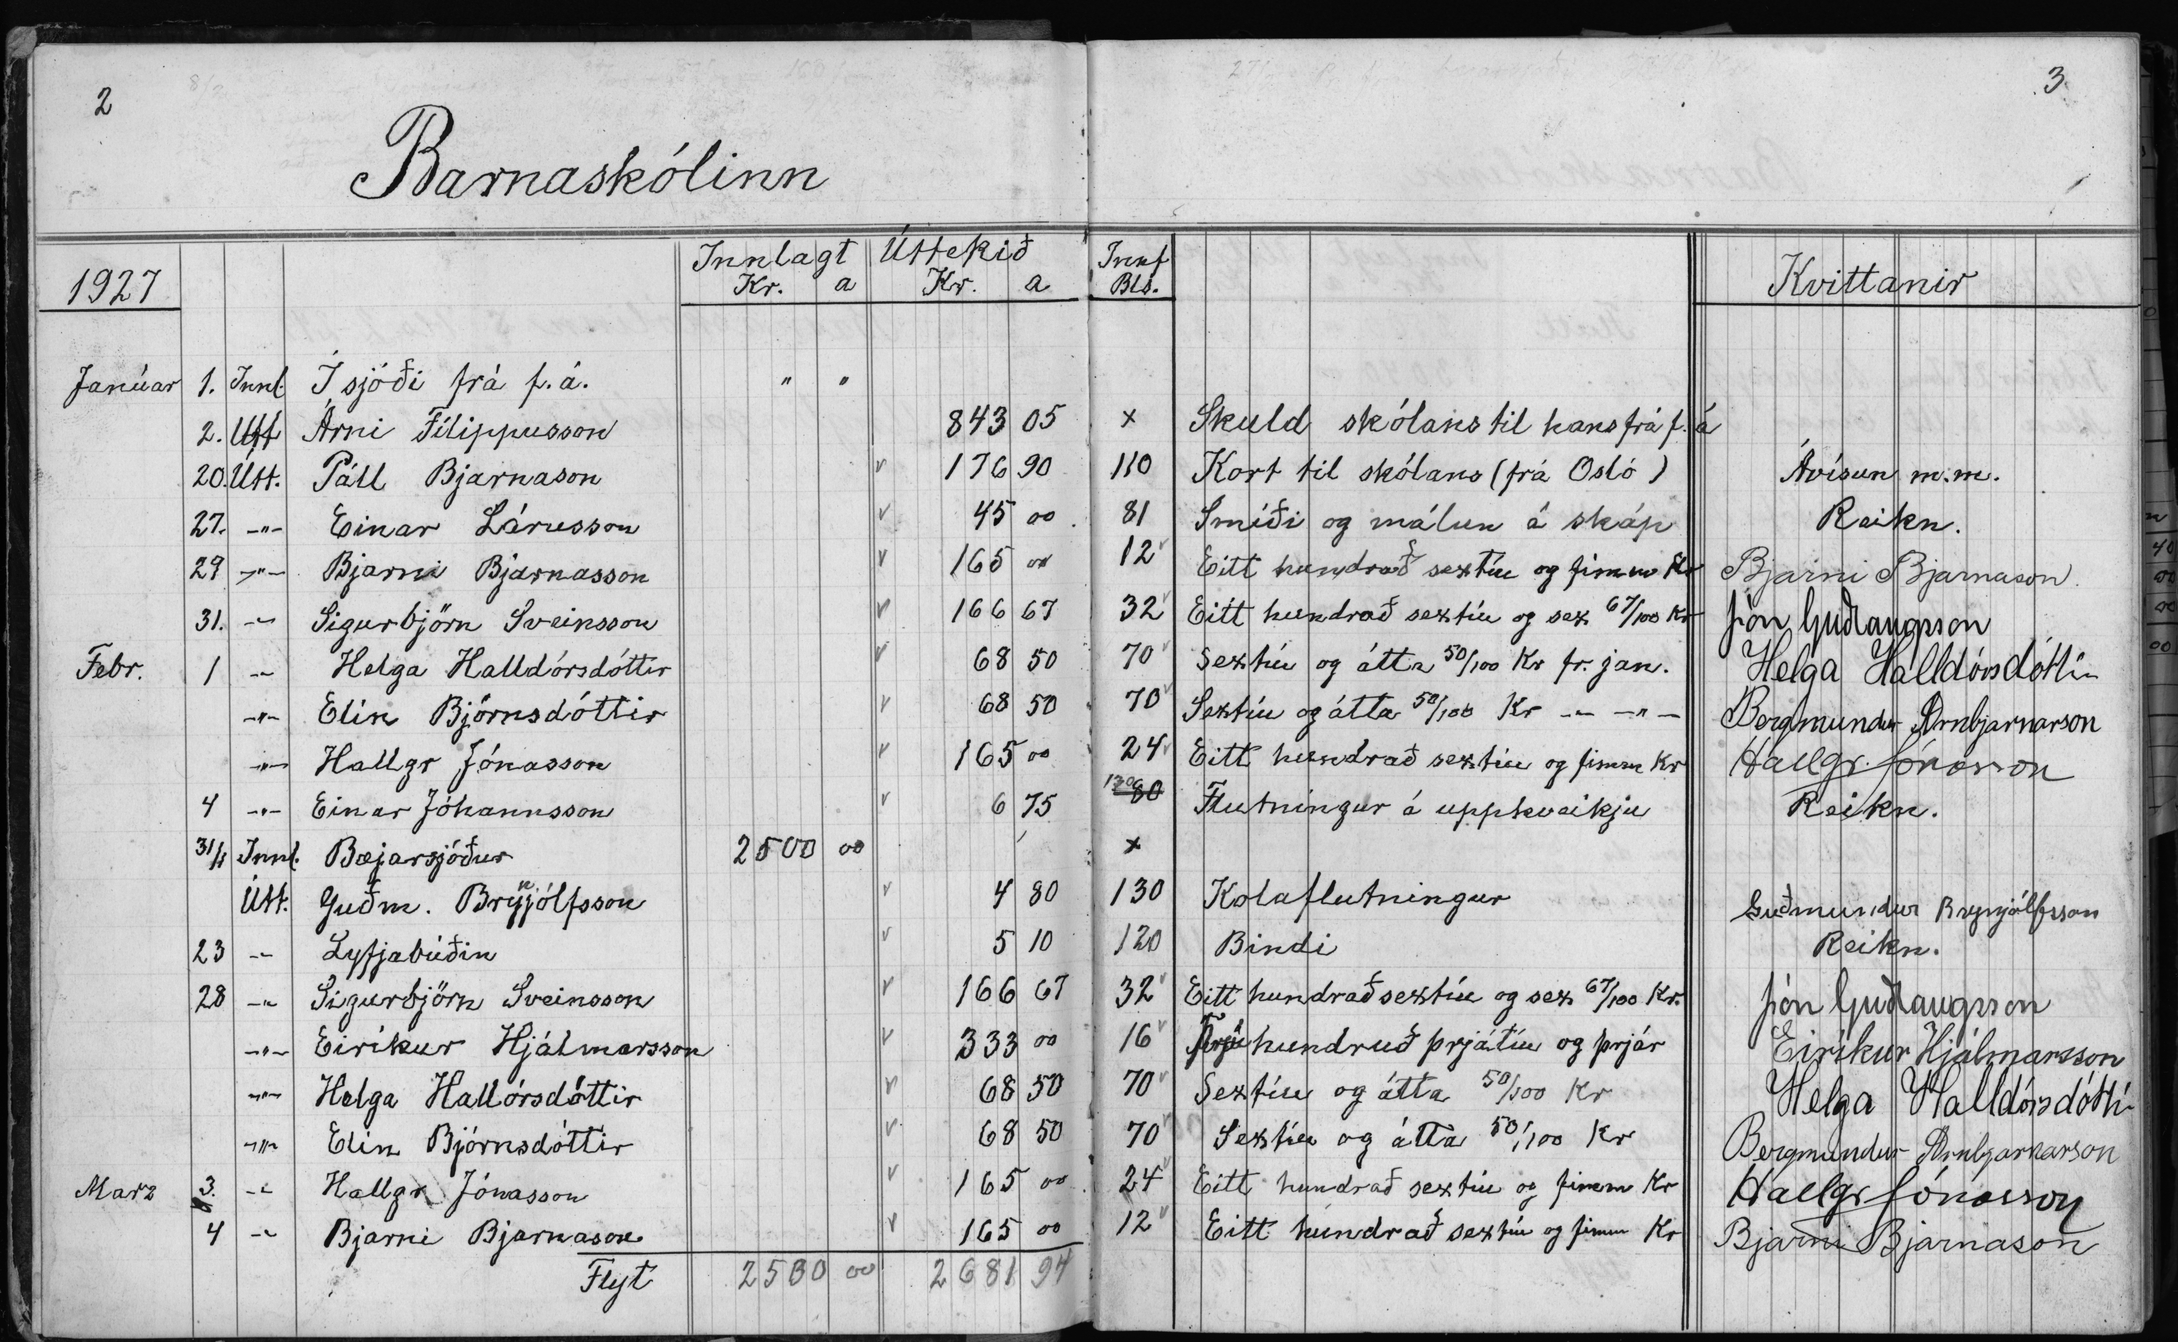 2 3
Barnaskólinn
1927 Innlagt Úttekið Innf Kvittanir
Kr. a Kr. a Bls.
Janúar 1. Innl. Í sjóði frá f. á. " "
2. Útt Árni Filippusson 843 05 x Skuld skólans til hans frá f. á
20. Útt. Páll Bjarnason v 176 90 110 Kort til skólans (frá Osló) Ávísun m.m.
27. -"- Einar Lárusson v 45 00 81 Smíði og málun á skáp Reikn.
29 -"- Bjarni Bjarnasson v 165 00 12 v Eitt hundrað sextíu og fimm Kr Bjarni Bjarnason.
31. -"- Sigurbjörn Sveinsson v 166 67 32 v Eitt hundrað sextíu og sex 67/100 Kr Jón Guðlaugsson
Febr. 1 -"- Helga Halldórsdóttir v 68 50 70 v Sextíu og átta 50/100 Kr fr. jan. Helga Halldórsdóttir
-"- Elín Björnsdóttir v 68 50 70 v Sextíu og átta 50/100 Kr -"- -"- Bergmundur Arnbjarnarson
-"- Hallgr Jónasson v 165 00 24 v Eitt hundrað sextíu og fimm Kr Hallgr. Jónasson
4 -"- Einar Jóhannsson v 6 75 130 80 Flutningur á uppkveikju Reikn.
31/1 Innl. Bæjarsjóður 2500 00 x
Útt. Guðm. Brynjólfsson v 4 80 130 Kolaflutningur Guðmundur Brynjólfsson
23 -"- Lyfjabúðin v 5 10 120 Bindi Reikn.
28 -"- Sigurbjörn Sveinsson v 166 67 32 v Eitt hundrað sextíu og sex 67/100 Kr. Jón Guðlaugsson
-"- Eiríkur Hjálmarsson v 333 00 16 v Þrjú hundruð þrjátíu og þrjár Eiríkur Hjálmarsson
-"- Helga Hallórsdóttir v 68 50 70 v Sextíu og átta 50/100 Kr Helga Halldórsdóttir
-"- Elín Björnsdóttir v 68 50 70 v Sextíu og átta 50/100 Kr Bergmundur Arnbjarnarson
Marz 3. -"- Hallgr Jónasson v 165 00 24 v Eitt hundrað sextíu og fimm Kr Hallgr Jónasson
4 -"- Bjarni Bjarnason v 165 00 12 v Eitt hundrað sextíu og fimm Kr Bjarni Bjarnason
Flyt 2500 00 2681 94